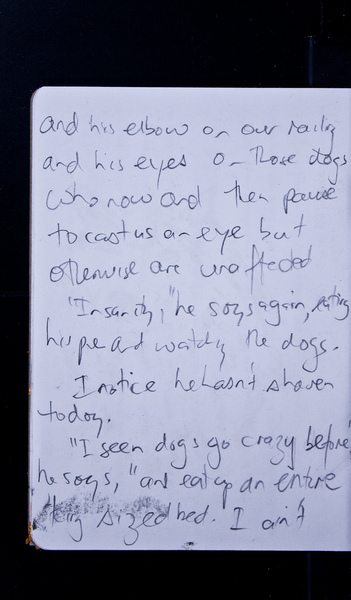 and his elbow on our railing
and his eyes on those dogs
who now and then pause
to cast us an eye but
otherwise are unaffected
"Insanity," he says again, eating
his pe and watching the dogs.
I notice he hasn't shaven
today.
"I seen dogs go crazy before,"
he says, "and eat up an entire
king sized bed. I ain't